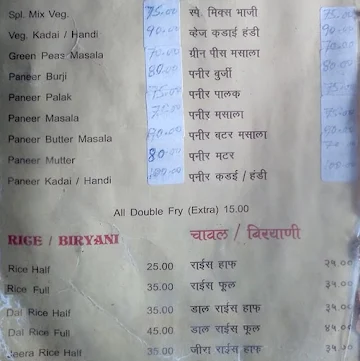 Spl. Mix Veg. 75.00 स्पे. मिक्स भाजी 75.00
Veg. Kadai / Handi 90.00 व्हेज कडाई हंडी 90.00
Green Peas Masala 70.00 ग्रीन पीस मसाला
Paneer Burji 80.00 पनीर बुर्जी 80.00
Paneer Palak 75.00 पनीर पालक 75.00
Paneer Masala पनीर मसाला
Paneer Butter Masala पनीर बटर मसाला
Paneer Mutter 80.00 पनीर मटर
Paneer Kadai / Handi पनीर कडाई / हंडी
All Double Fry (Extra) 15.00
RICE / BIRYANI चावल / बिरयाणी
Rice Half 25.00 राईस हाफ २५.००
Rice Full 35.00 राईस फूल ३५.००
Dal Rice Half 35.00 डाल राईस हाफ ३५.००
Dal Rice Full 45.00 डाल राईस फूल ४५.००
Jeera Rice Half 35.00 जीरा राईस हाफ ३५.००